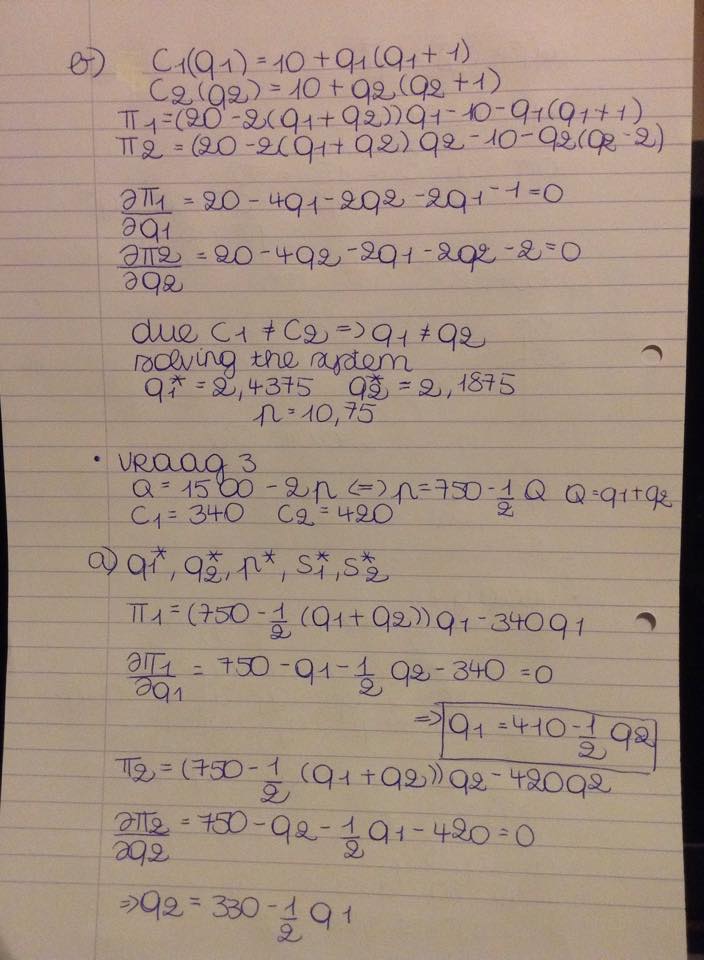 b) C1(q1) = 10 + q1(q1 + 1)
C2(q2) = 10 + q2(q2 + 1)
π1 = (20 - 2(q1 + q2))q1 - 10 - q1(q1 + 1)
π2 = (20 - 2(q1 + q2) q2 - 10 - q2(q2 - 2)
∂π1/∂q1 = 20 - 4q1 - 2q2 - 2q1 - 1 = 0
∂π2/∂q2 = 20 - 4q2 - 2q1 - 2q2 - 2 = 0
due C1 ≠ C2 => q1 ≠ q2
solving the system
q1* = 2,4375 q2* = 2,1875
p = 10,75
• VRAAG 3
Q = 1500 - 2p <=> p = 750 - 1/2 Q Q = q1 + q2
C1 = 340 C2 = 420
a) q1*, q2*, p*, S1*, S2*
π1 = (750 - 1/2 (q1 + q2)) q1 - 340q1
∂π1/∂q1 = 750 - q1 - 1/2 q2 - 340 = 0
=> q1 = 410 - 1/2 q2
π2 = (750 - 1/2 (q1 + q2)) q2 - 420q2
∂π2/∂q2 = 750 - q2 - 1/2 q1 - 420 = 0
=> q2 = 330 - 1/2 q1